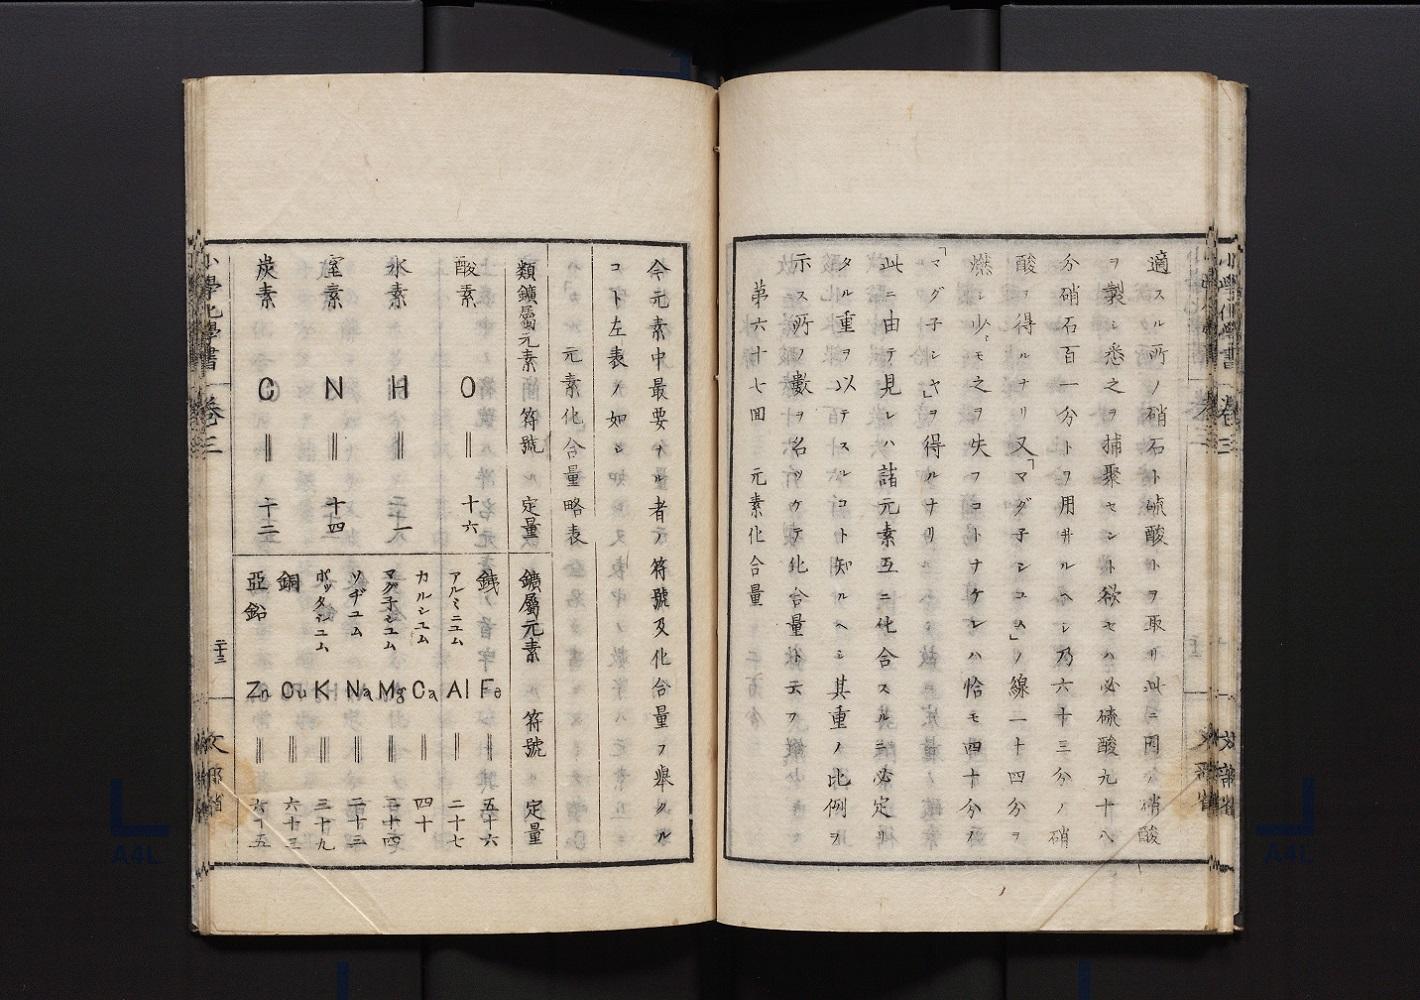 適スル所ノ硝石ト硫酸トヲ取リ此ニ因テ硝酸
ヲ製シ悉之ヲ捕聚セント欲セハ必硫酸九十八
分硝石百一分トヲ用井ルヘシ乃六十三分ノ硝
酸ヲ得ルナリ又「マグ子シユム」ノ線二十四分ヲ
燃シ少モ之ヲ失フコトナケレハ恰モ四十分ノ
「マグ子シヤ」ヲ得ルナリ
此ニ由テ見レハ諸元素互ニ化合スルニ必定リ
タル重ヲ以テスルコト知ルヘシ其重ノ比例ヲ
示ス所ノ數ヲ名ツケテ化合量ト云フ
第六十七回 元素化合量
今元素中最要ナル者ノ符號及化合量ヲ舉クル
コト左表ノ如シ
元素化合量略表
類鑛屬元素 符號 定量
酸素 O ‖ 十六
水素 H ‖ 一
窒素 N ‖ 十四
炭素 C ‖ 十二
鑛屬元素 符號 定量
鐵 Fe ‖ 五十六
アルミニユム Al ‖ 二十七
カルシユム Ca ‖ 四十
マグ子シユム Mg ‖ 二十四
ソヂユム Na ‖ 二十三
ポッタシユム K ‖ 三十九
銅 Cu ‖ 六十三
亞鉛 Zn ‖ 六十五
小學化學書 卷三 二十三 文部省